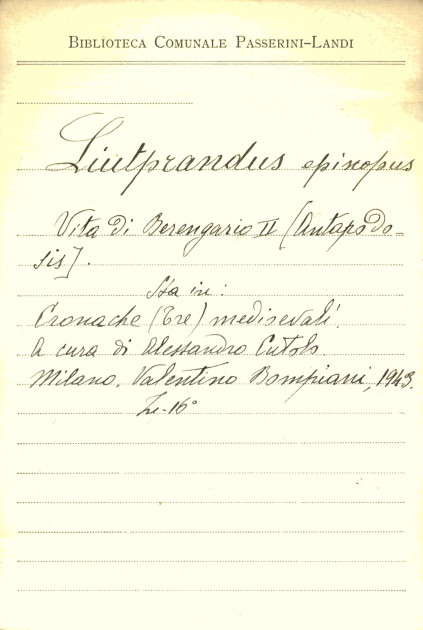 BIBLIOTECA COMUNALE PASSERINI-LANDI
Liutprandus episcopus
Vita di Berengario II [Antapodo-
sis].
Sta in:
Cronache (Tre) medioevali.
A cura di Alessandro Cutolo.
Milano, Valentino Bompiani, 1943.
in-16°